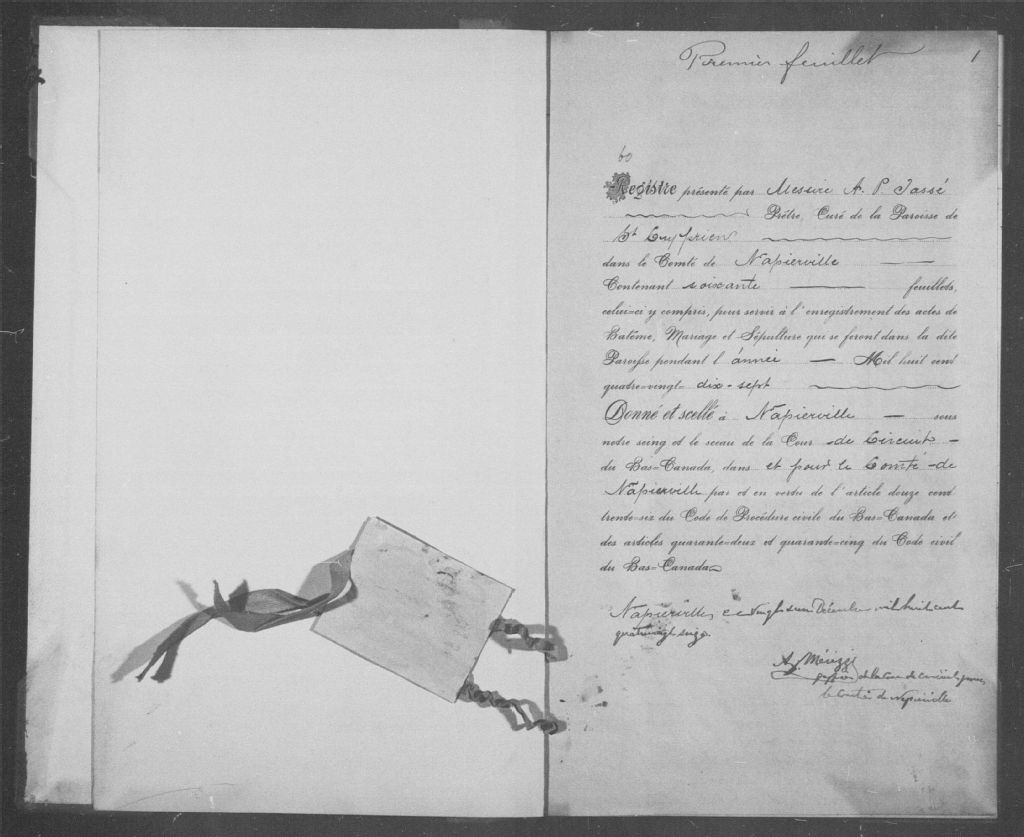 Premier feuillet 1
60
Registre présenté par Messire A. P. Tassé
Prêtre, Curé de la Paroisse de
St Cyprien
dans le Comté de Napierville
Contenant soixante feuillets,
celui=ci y compris, pour servir à l'enregistrement des actes de
Batême, Mariage et Sépulture qui se feront dans la dite
Paroisse pendant l'année Mil huit cent
quatre=vingt= dix-sept
Donné et scellé à Napierville sous
notre seing et le sceau de la Cour de Circuit
du Bas=Canada, dans et pour le Comté de
Napierville par et en vertu de l'article douze cent
trente=six du Code de Procédure civile du Bas=Canada et
des articles quarante=deux et quarante=cinq du Code civil
du Bas=Canada
Napierville, ce vingt un Décembre mil huit cent
quatrevingt seize.
de la Cour de circuit pour
le Comté de Napierville